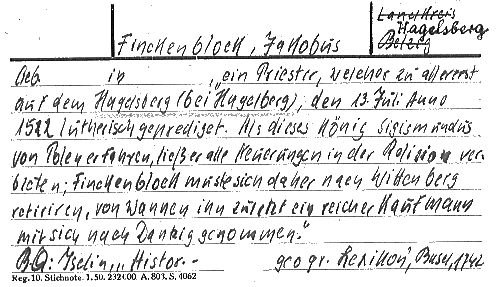 Landkreis
Hagelsberg
Belzig
Finckenblock, Jakobus
Geb. in „ein Priester, welcher zu allererst
auf dem Hagelsberg (bei Hagelberg), den 13. Juli Anno
1522 lutherisch geprediget. Als dieses König Sigismundus
von Polen erfahren, ließ er alle Neuerungen in der Religion ver-
bieten; Finckenblock muste sich daher nach Wittenberg
retiriren, von wannen ihn zuletzt ein reicher Kaufmann
mit sich nach Danzig genommen."
BQ: Iselin, „Histor.- geogr. Lexikon", Basel, 1742
Reg. 10. Stichnote. 1. 50. 232400. A. 803. S. 4062